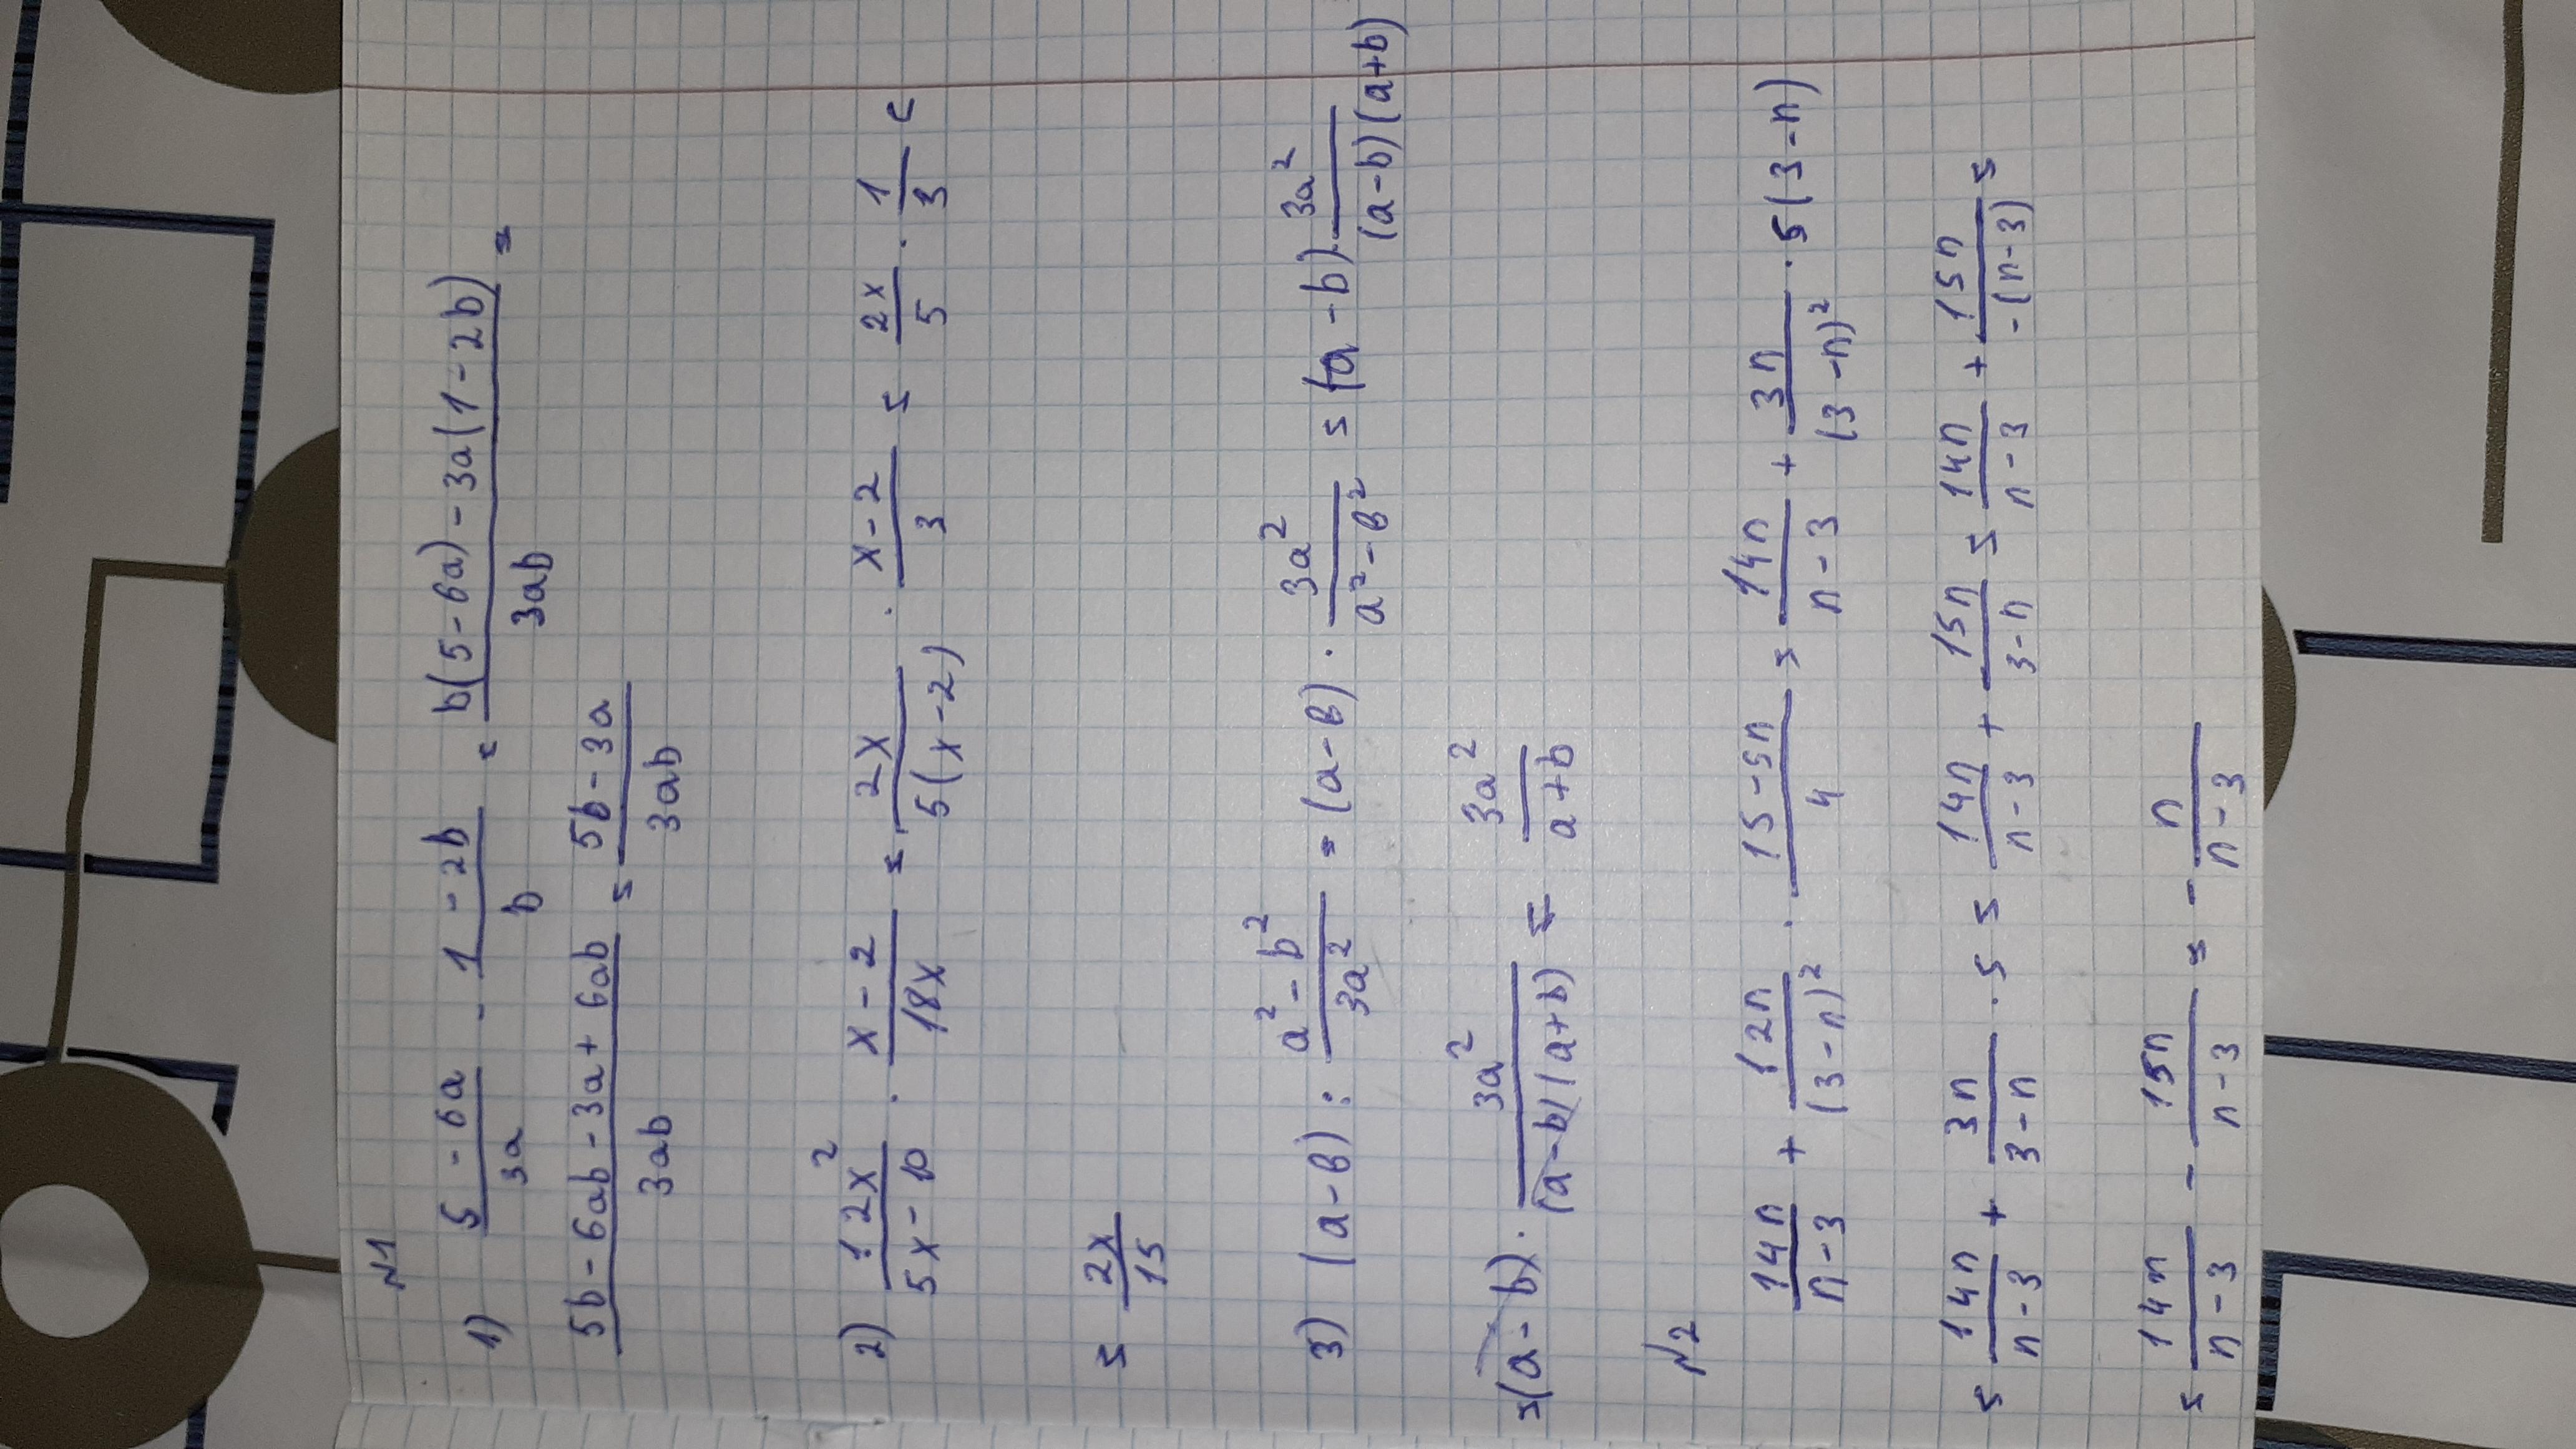 №1
1) (5-6a)/(3a) - (1-2b)/b = (b(5-6a)-3a(1-2b))/(3ab) =
(5b-6ab-3a+6ab)/(3ab) = (5b-3a)/(3ab)
2) (12x²)/(5x-10) · (x-2)/(18x) = (2x)/(5(x-2)) · (x-2)/3 = (2x)/5 · 1/3 =
= (2x)/15
3) (a-b) : (a²-b²)/(3a²) = (a-b) · (3a²)/(a²-b²) = (a-b) · (3a²)/((a-b)(a+b))
=(a-b) · (3a²)/((a-b)(a+b)) = (3a²)/(a+b)
№2
(14n)/(n-3) + (12n)/((3-n)²) · (15-5n)/4 = (14n)/(n-3) + (3n)/((3-n)²) · 5(3-n)
= (14n)/(n-3) + (3n)/(3-n) · 5 = (14n)/(n-3) + (15n)/(3-n) = (14n)/(n-3) + (15n)/(-(n-3)) =
= (14n)/(n-3) - (15n)/(n-3) = - n/(n-3)